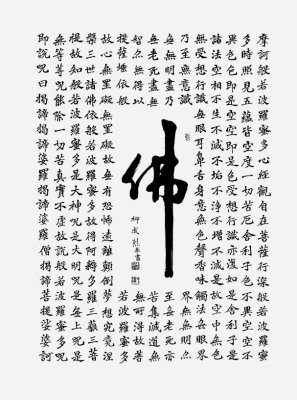 摩訶般若波羅蜜多心經觀自在菩薩行深般若波羅蜜
多時照見五蘊皆空度一切苦厄舍利子色不異空空不
異色色即是空空即是色受想行識亦復如是舍利子是
諸法空相不生不滅不垢不淨不增不減是故空中無色
無受想行識無眼耳鼻舌身意無色聲香味觸法無眼界
乃至無意識界無無明亦
無無明盡乃至無老死亦
無老死盡無苦集滅道無
智亦無得以無所得故菩
提薩埵依般若波羅蜜多
佛
故心無罣礙無罣礙故無有恐怖遠離顛倒夢想究竟涅
槃三世諸佛依般若波羅蜜多故得阿耨多羅三藐三菩
提故知般若波羅蜜多是大神呪是大明呪是無上呪是
無等等呪能除一切苦真實不虛故說般若波羅蜜多呪
即說呪曰揭諦揭諦婆羅揭諦婆羅僧揭諦菩提娑婆訶